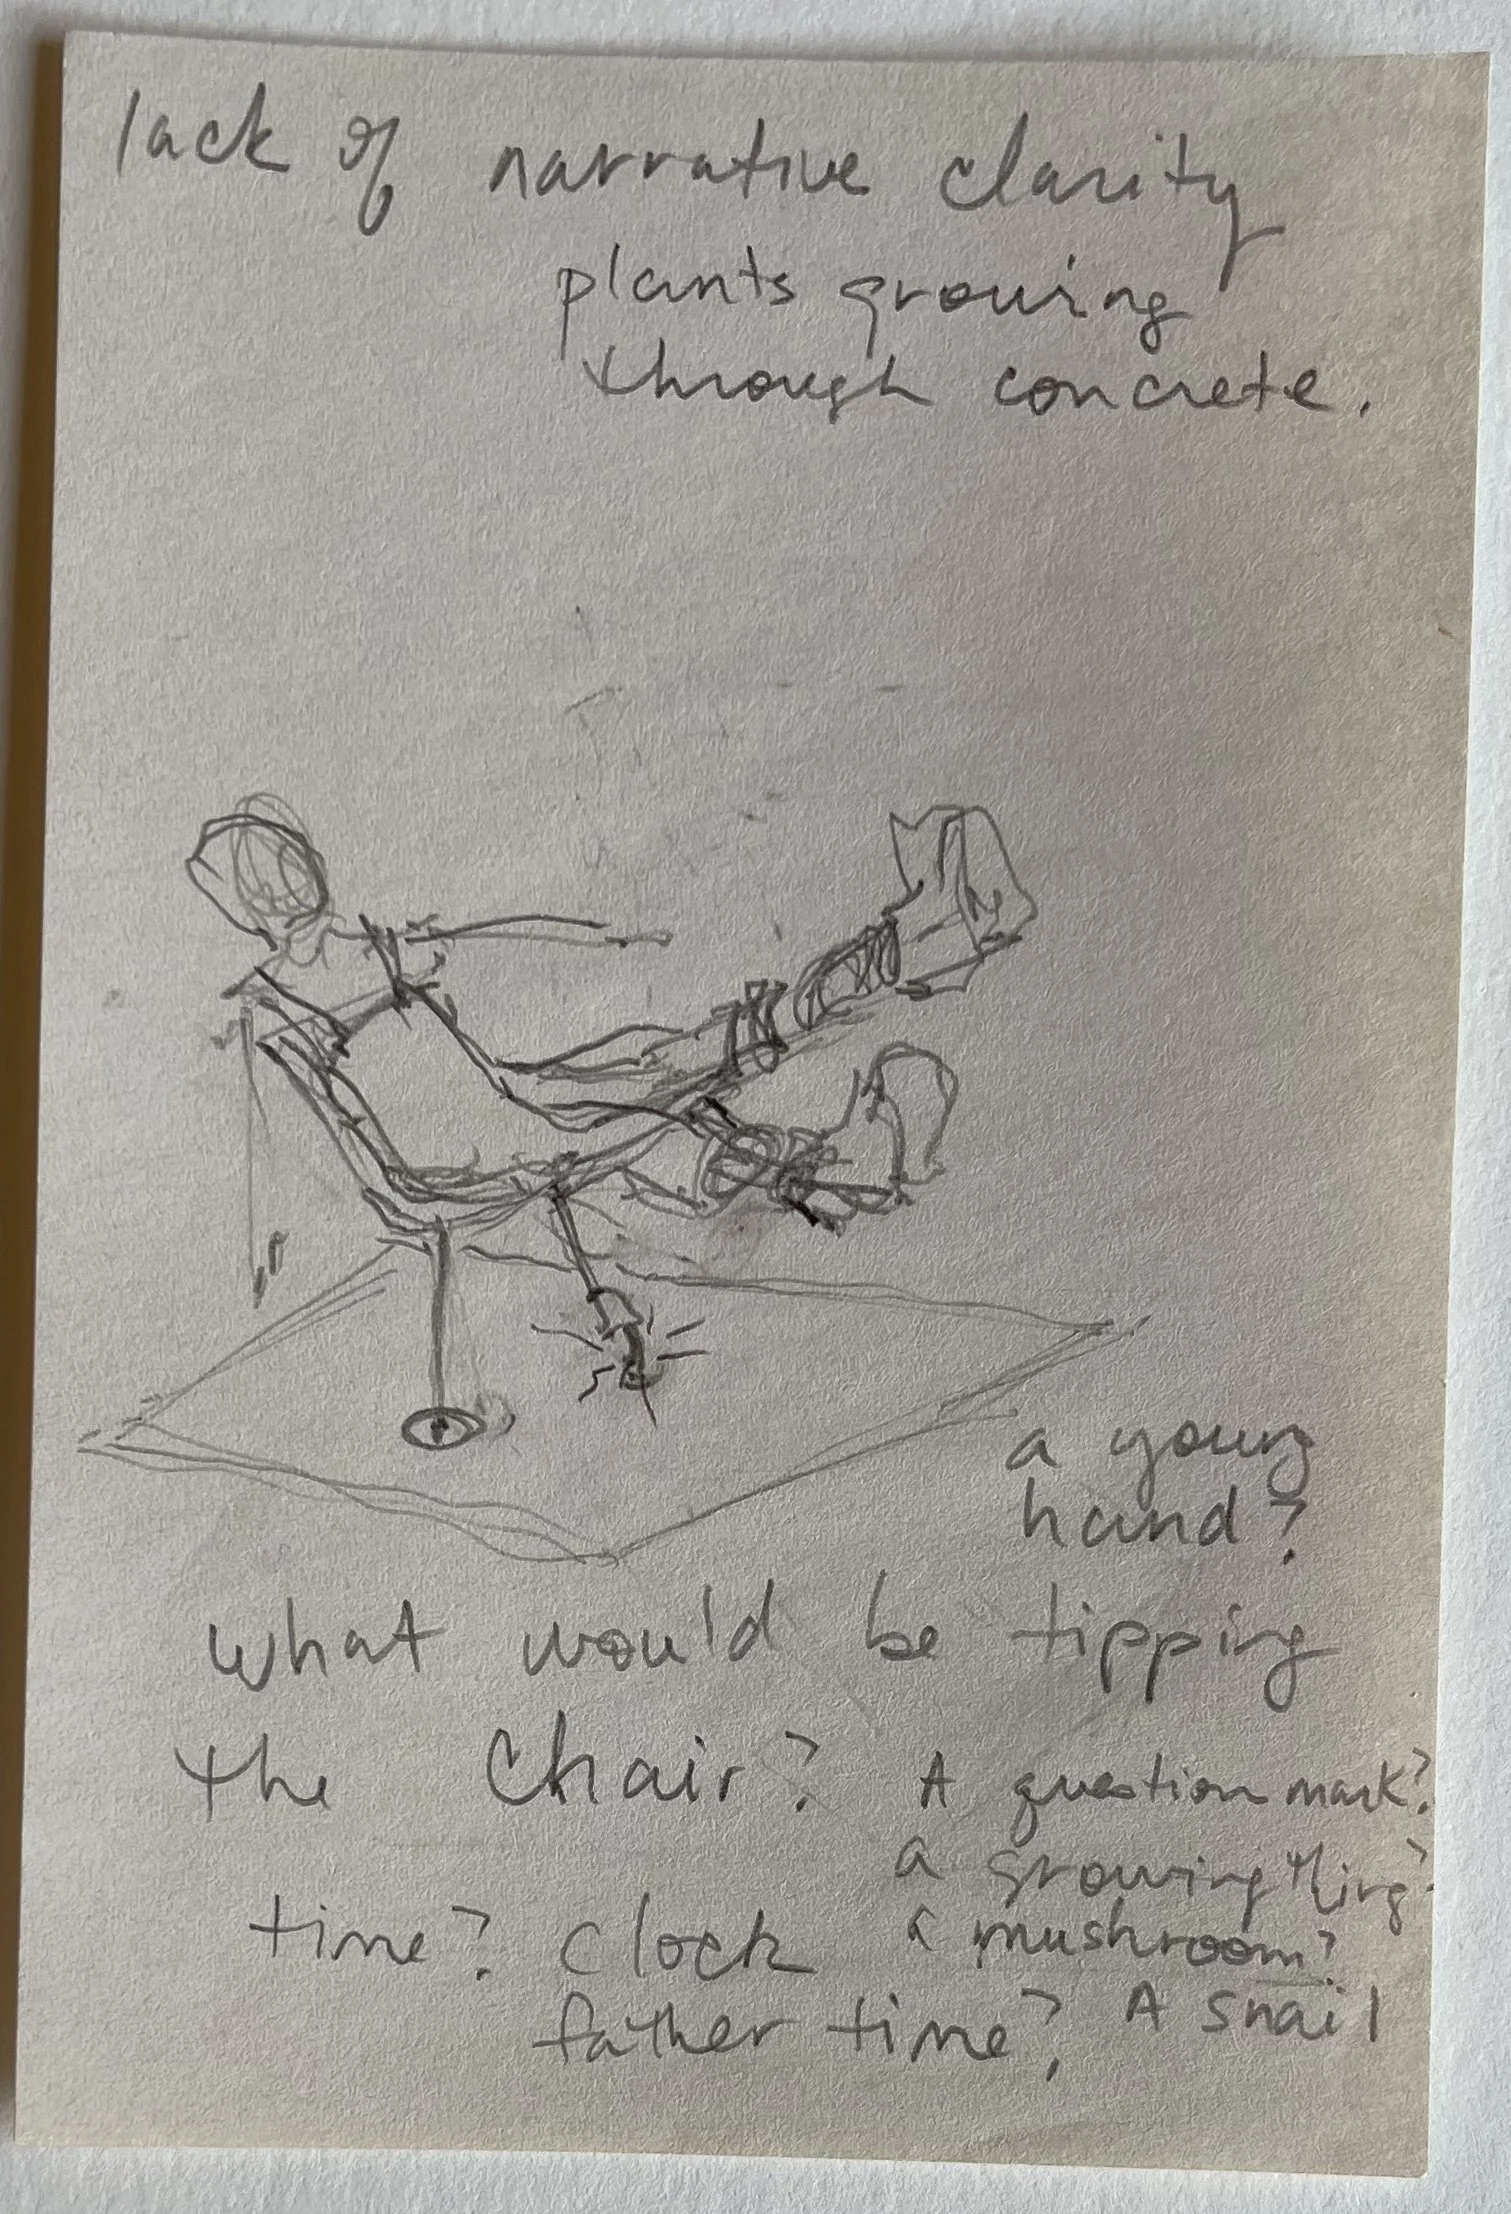 lack of narrative clarity
plants growing
through concrete.
a young
hand?
what would be tipping
the chair?
A question mark?
a growing thing?
a mushroom?
A snail
time? clock
father time?